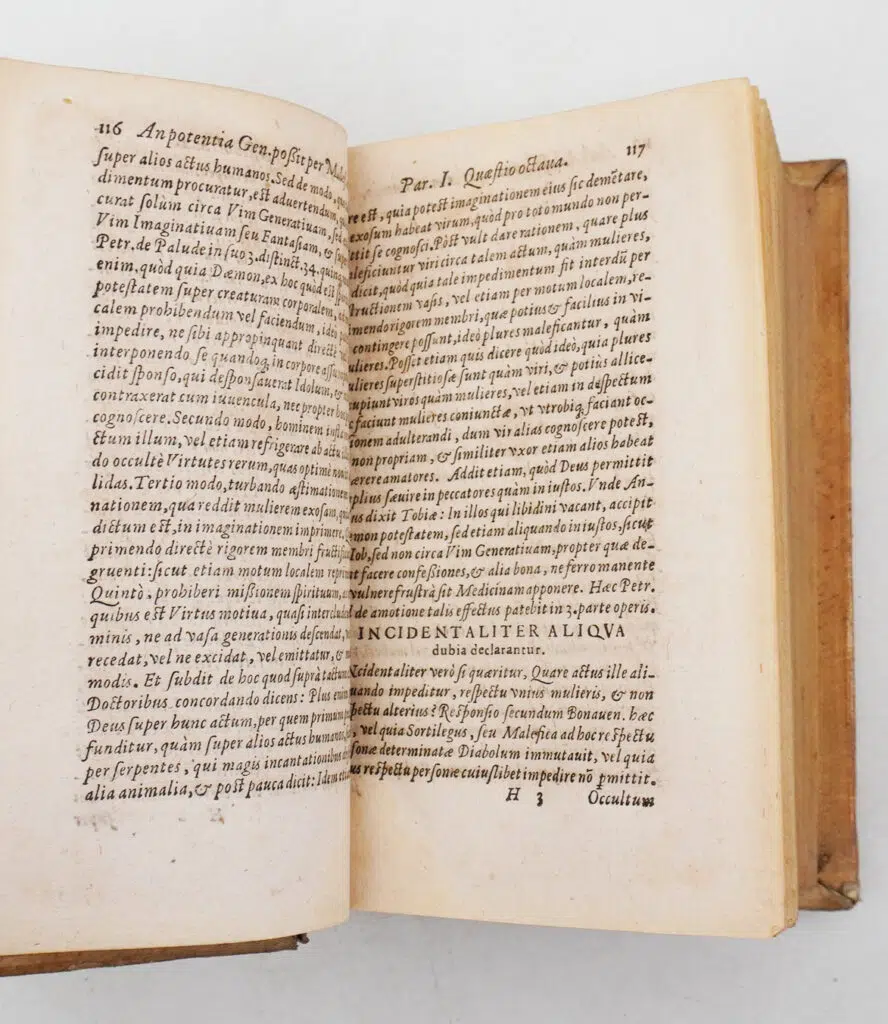 116 An potentia Gen. poßit per Mal
super alios actus humanos. Sed de modo, quo
dimentum procuratur, est advertendum, q
curat solùm circa Vim Generatiuam, sed
Vim Imaginatiuam seu Fantasiam, & sup
Petr. de Palude in suo 3. distinct. 34. quinq
enim, quòd quia Dæmon, ex hoc quòd est sp
potestatem super creaturam corporalem, ad
calem prohibendum vel faciendum, ideo po
impedire, ne sibi appropinquant directè v
interponendo se quandoq; in corpore assum
cidit sponso, qui desponsauerat Idolum, &
contraxerat cum iuuencula, nec propter hoc
cognoscere. Secundo modo, hominem inflam
ctum illum, vel etiam refrigerare ab actu
do occultè Virtutes rerum, quas optimè noui
lidas. Tertio modo, turbando æstimationem
nationem, qua reddit mulierem exosam, qu
dictum est, in imaginationem imprimere.
primendo directè rigorem membri fructific
gruenti: sicut etiam motum localem repri
Quintò, prohiberi mißionem spirituum, a
quibus est Virtus motiua, quasi intercluden
minis, ne ad vasa generationis descendat, v
recedat, vel ne excidat, vel emittatur, &
modis. Et subdit de hoc quod suprà tactum
Doctoribus concordando dicens: Plus enim
Deus super hunc actum, per quem primum p
funditur, quàm super alios actus humanos,
per serpentes, qui magis incantationibus
alia animalia, & post pauca dicit: Idem etia
Par. I. Quæstio octaua. 117
re est, quia potest imaginationem eius sic demētare,
exosum habeat virum, quòd pro toto mundo non per-
ttit se cognosci. Pòst vult dare rationem, quare plus
leficiuntur viri circa talem actum, quàm mulieres,
dicit, quòd quia tale impedimentum fit interdū per
structionem vasis, vel etiam per motum localem, re-
imendo rigorem membri, quæ potius & facilius in vi-
contingere possunt, ideo plures maleficantur, quàm
ulieres. Posset etiam quis dicere quòd ideo, quia plures
ulieres superstitiosæ sunt quàm viri, & potiùs allice-
cupiunt viros quàm mulieres, vel etiam in despectum
c faciunt mulieres coniunctæ, vt vtrobiq; faciant oc-
ionem adulterandi, dum vir alias cognoscere potest,
non propriam, & similiter vxor etiam alios habeat
ærere amatores. Addit etiam, quòd Deus permittit
plius sæuire in peccatores quàm in iustos. Vnde An-
us dixit Tobiæ: In illos qui libidini vacant, accipit
mon potestatem, sed etiam aliquando in iustos, sicut
Iob, sed non circa Vim Generatiuam, propter quæ de-
nt facere confeßiones, & alia bona, ne ferro manente
vulnere frustrà sit Medicinam apponere. Hæc Petr.
d de amotione talis effectus patebit in 3. parte operis.
INCIDENTALITER ALIQVA
dubia declarantur.
Ncidentaliter verò si quæritur, Quare actus ille ali-
uando impeditur, respectu vnius mulieris, & non
pectu alterius? Responsio secundum Bonauen. hæc
, vel quia Sortilegus, seu Malefica ad hoc respectu
sonæ determinatæ Diabolum immutauit, vel quia
us respectu personæ cuiuslibet impedire nō pmittit.
H 3 Occultum